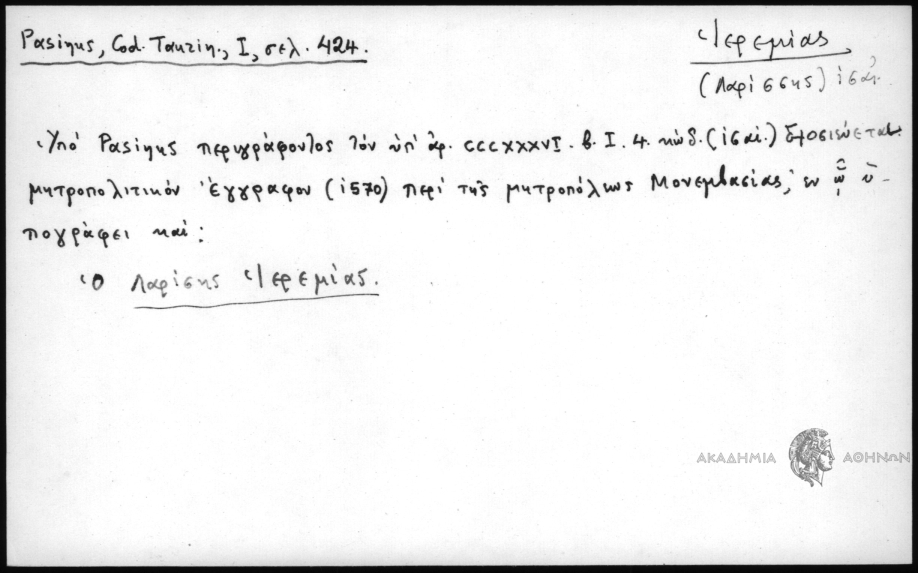 Pasinus, Cod. Taurin., I, σελ. 424.
Ἱερεμίας
(Λαρίσσης) ις αἰ.
Ὑπὸ Pasinus περιγράφοντος τὸν ὑπ' ἀρ. CCCXXXVI. b. I. 4. κώδ. (ις αἰ.) δημοσιεύεται
μητροπολιτικόν ἔγγραφον (1570) περὶ τῆς μητροπόλεως Μονεμβασίας, ἐν ᾧ ὑ-
πογράφει καί:
Ὁ Λαρίσης Ἱερεμίας.
ΑΚΑΔΗΜΙΑ ΑΘΗΝΩΝ